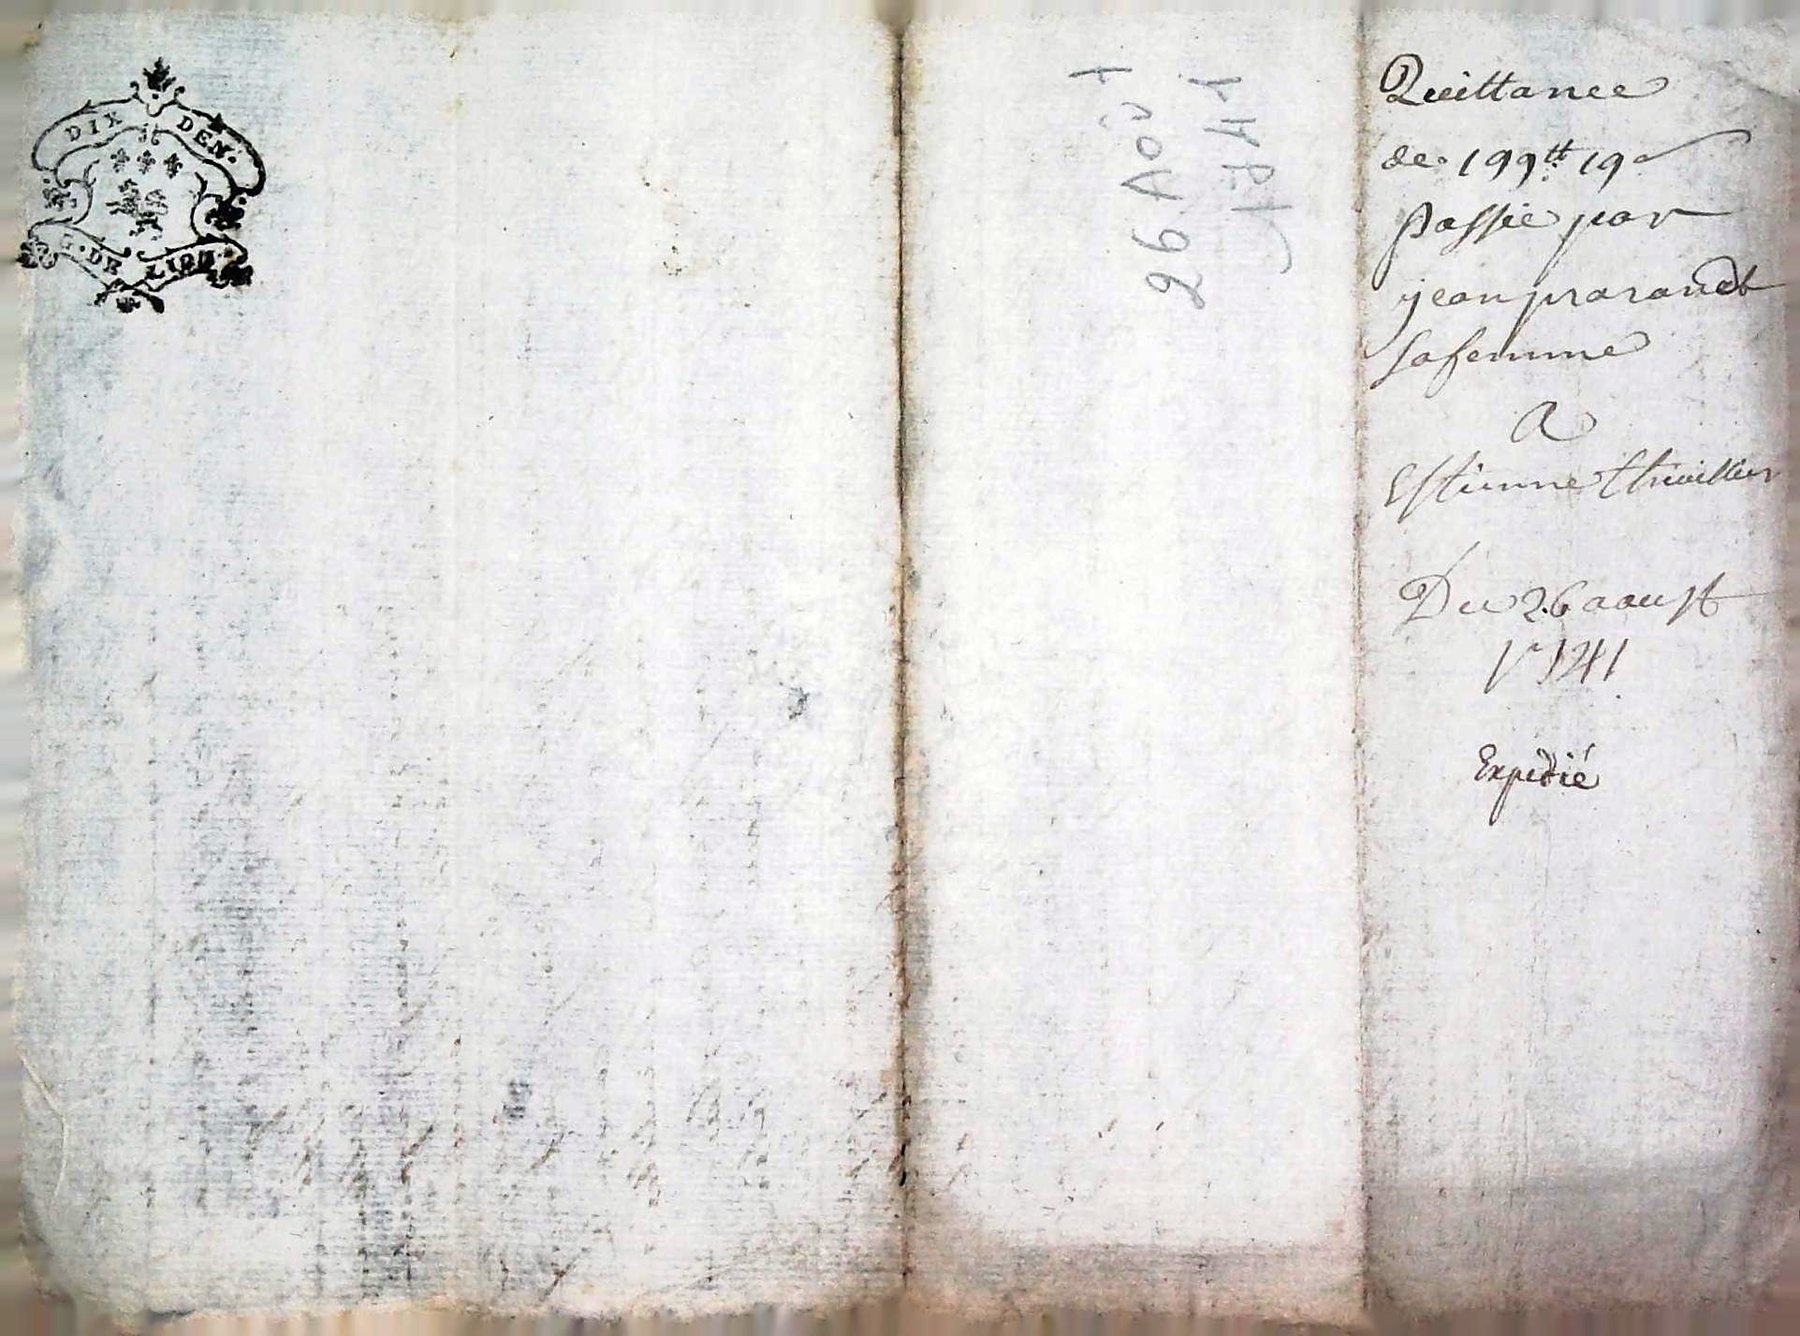 DIX DEN.
G. DE LION
26 AOÛT
1741
Quittance
de 199tt 19s
Passée par
jean prarond et
sa femme
A
Estienne thivillier
Du 26 aoust
1741
Expédié